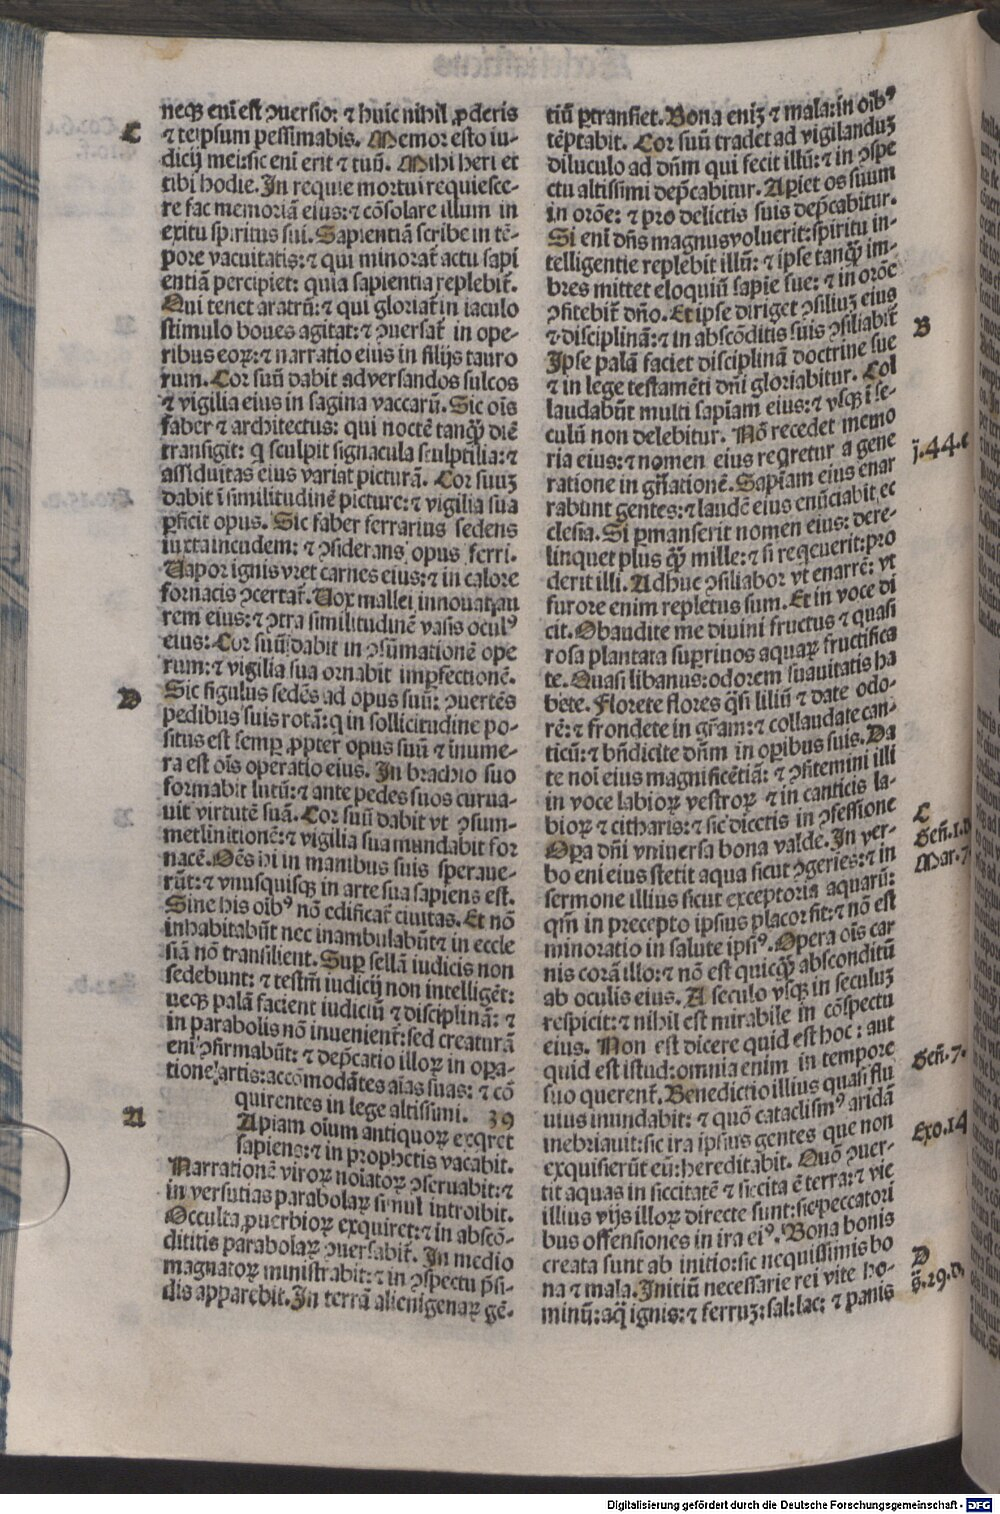 neqꝫ eni͂ est ꝯuersio: ⁊ huic nihil ꝓderis
⁊ teipsum pessimabis. Memor esto iu-
dicij mei: sic eni͂ erit ⁊ tuũ. Mihi heri et
tibi hodie. In requie mortui requiesce-
re fac memoriã eius: ⁊ cõsolare illum in
exitu spiritus sui. Sapientiã scribe in tẽ-
pore vacuitatis: ⁊ qui minorat᷑ actu sapi
entiã percipiet: quia sapientia replebit᷑.
Qui tenet aratrũ: ⁊ qui gloriat᷑ in iaculo
stimulo boues agitat: ⁊ ꝯuersat᷑ in ope-
ribus eoꝝ: ⁊ narratio eius in filijs tauro
rum. Cor suũ dabit ad versandos sulcos
⁊ vigilia eius in sagina vaccarũ. Sic oĩs
faber ⁊ architectus: qui noctẽ tanqꝫ̃ diẽ
transigit: q̃ sculpit signacula sculptilia: ⁊
assiduitas eius variat picturã. Cor suuꝫ
dabit ĩ similitudinẽ picture: ⁊ vigilia sua
ꝑficit opus. Sic faber ferrarius sedens
iuxta incudem: ⁊ ꝯsiderans opus ferri.
Vapor ignis vret carnes eius: ⁊ in calore
fornacis ꝯcertat᷑. Vox mallei innouat au
rem eius: ⁊ ꝯtra similitudinẽ vasis oculꝰ
eius: Cor suũ dabit in ꝯsũmationẽ ope
rum: ⁊ vigilia sua ornabit imꝑfectionẽ.
Sic figulus sedẽs ad opus suũ: ꝯuertẽs
pedibus suis rotã: q̃ in sollicitudine po-
situs est semꝑ ꝓpter opus suũ ⁊ ĩnume-
ra est oĩs operatio eius. In brachio suo
formabit lutũ: ⁊ ante pedes suos curua-
uit virtutẽ suã. Cor suũ dabit vt ꝯsum-
met linitionẽ: ⁊ vigilia sua mundabit for
nacẽ. Oẽs hi in manibus suis speraue-
rũt: ⁊ vnusquisqꝫ in arte sua sapiens est.
Sine his oĩbꝰ nõ edificat᷑ ciuitas. Et nõ
inhabitabũt nec inambulabũt: ⁊ in eccle
siã nõ transilient. Suꝑ sellã iudicis non
sedebunt: ⁊ testm̃ iudicij non intelligẽt:
neqꝫ palã facient iudiciũ ⁊ disciplinã: ⁊
in parabolis nõ inuenient᷑: sed creaturã
eui ꝯfirmabũt: ⁊ dep̃catio illoꝝ in oꝑa-
tione artis: accõmodãtes aĩas suas: ⁊ cõ
quirentes in lege altissimi. 39
Apiam oĩum antiquoꝝ exq̃ret
sapiens: ⁊ in prophetis vacabit.
Narrationẽ viroꝝ noĩatoꝝ ꝯseruabit: ⁊
in versutias parabolaꝝ simul introibit.
Occulta ꝓuerbioꝝ exquiret: ⁊ in abscõ-
dititis parabolaꝝ ꝯuersabit᷑. In medio
magnatoꝝ ministrabit: ⁊ in ꝯspectu p̃si-
dis apparebit. In terrã alienigenaꝝ gẽ-
C
D
A
tiũ ꝑtransiet. Bona enĩꝫ ⁊ mala: in oĩbꝰ
tẽptabit. Cor suũ tradet ad vigilanduꝫ
diluculo ad dñm qui fecit illũ: ⁊ in ꝯspe
ctu altissimi dep̃cabitur. Aꝑiet os suum
in orõe: ⁊ pro delictis suis dep̃cabitur.
Si eni͂ dñs magnus voluerit: spiritu in-
telligentie replebit illũ: ⁊ ipse tanqꝫ̃ im-
bres mittet eloquiũ sapiẽ sue: ⁊ in orõe
ꝯfitebit᷑ dño. Et ipse diriget ꝯsiliuꝫ eius
⁊ disciplinã: ⁊ in abscõditis suis ꝯsiliabit᷑
Ipse palã faciet disciplinã doctrine sue
⁊ in lege testamẽti dñi gloriabitur. Col
laudabũt multi sapĩam eius: ⁊ vsqꝫ ĩ se-
culũ non delebitur. Nõ recedet memo
ria eius: ⁊ nomen eius req̃retur a gene
ratione in gñationẽ. Sapĩam eius enar
rabunt gentes: ⁊ laudẽ eius enũciabit ec
clesia. Si ꝑmanserit nomen eius: dere-
linquet plus qꝫ̃ mille: ⁊ si reqeuerit: pro
derit illi. Adhuc ꝯsiliabor vt enarrẽ: vt
furore enim repletus sum. Et in voce di
cit. Obaudite me diuini fructus ⁊ quasi
rosa plantata suꝑ riuos aquaꝝ fructifica
te. Quasi libanus: odorem suauitatis ha
bete. Florete flores q̃si liliũ ⁊ date odo-
rẽ: ⁊ frondete in gr̃am: ⁊ collaudate can-
ticũ: ⁊ bñdicite dñm in oꝑibus suis. Da
te noĩ eius magnificẽtiã: ⁊ ꝯfitemini illi
in voce labioꝝ vestroꝝ ⁊ in canticis la-
bioꝝ ⁊ citharis: ⁊ sic dicetis in ꝯfessione
Oꝑa dñi vniuersa bona valde. In ver-
bo eni eius stetit aqua sicut ꝯgeries: ⁊ in
sermone illius sicut exceptoria aquarũ:
qm̃ in precepto ipsius placor fit: ⁊ nõ est
minoratio in salute ipsiꝰ. Opera oĩs car
nis corã illo: ⁊ nõ est quicqꝫ̃ absconditũ
ab oculis eius. A seculo vsqꝫ in seculuꝫ
respicit: ⁊ nihil est mirabile in cõspectu
eius. Non est dicere quid est hoc: aut
quid est istud: omnia enim in tempore
suo querent᷑. Benedictio illius quasi flu
uius inundabit: ⁊ quõ cataclismꝰ aridã
inebriauit: sic ira ipsius gentes que non
exquisierũt eũ: hereditabit. Quõ ꝯuer-
tit aquas in siccitatẽ ⁊ siccita ẽ terra: ⁊ vie
illius vijs illoꝝ directe sunt: sic peccatori
bus offensiones in ira eiꝰ. Bona bonis
creata sunt ab initio: sic nequissimis bo
na ⁊ mala. Initiũ necessarie rei vite ho-
minũ: aq̃ ignis: ⁊ ferruꝫ: sal: lac: ⁊ panis
B
j.44.c
C
Geñ.1.
Mar.7
Geñ.7.
Exo.14
D
Digitalisierung gefördert durch die Deutsche Forschungsgemeinschaft - DFG